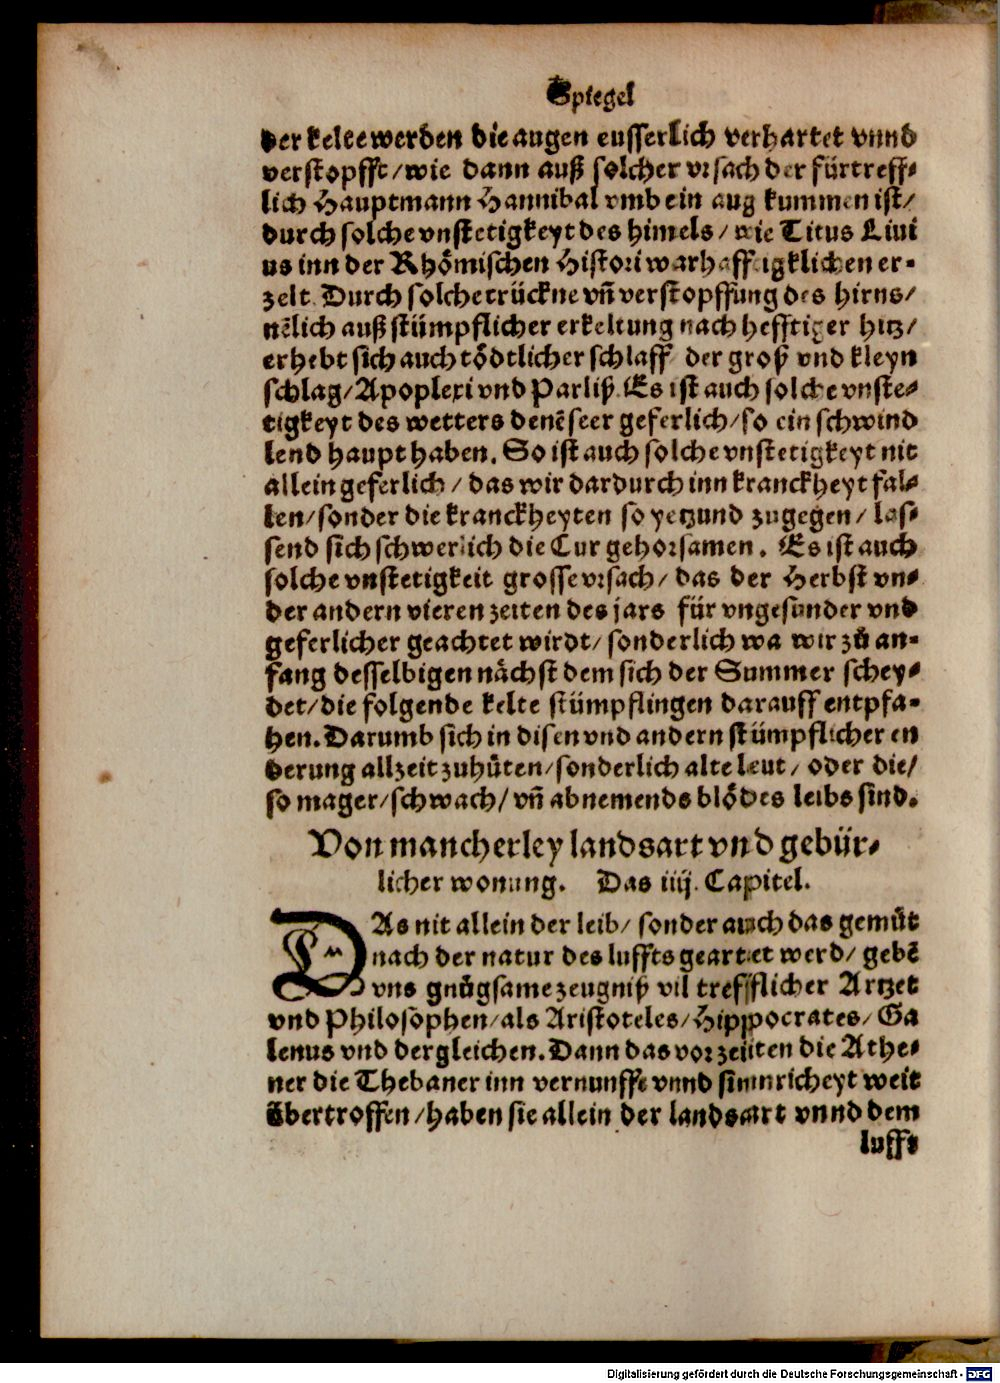 Spiegel
der kelte werden die augen eusserlich verhartet vnnd
verstopfft/wie dann auß solcher vrsach der fürtreff⸗
lich Hauptmann Hannibal vmb ein aug kummen ist/
durch solche vnstetigkeyt des himels/wie Titus Liui
us inn der Rhömischen Histori warhafftigklichen er⸗
zelt. Durch solche trückne vñ verstopffung des hirns/
nẽlich auß stümpflicher erkeltung nach hefftiger hitz/
erhebt sich auch tödtlicher schlaff der groß vnd kleyn
schlag/Apoplexi vnd Parliß. Es ist auch solche vnste⸗
tigkeyt des wetters denẽ seer geferlich/so ein schwind
lend haupt haben. So ist auch solche vnstetigkeyt nit
allein geferlich/das wir dardurch inn kranckheyt fal⸗
len/sonder die kranckheyten so yetzund zugegen/las⸗
send sich schwerlich die Cur gehorsamen. Es ist auch
solche vnstetigkeit grosse vrsach/das der Herbst vn⸗
der andern vieren zeiten des jars für vngesunder vnd
geferlicher geachtet wirdt/sonderlich wa wir zů an⸗
fang desselbigen nächst dem sich der Summer schey⸗
det/die folgende kelte stümpflingen darauff entpfa⸗
hen. Darumb sich in disen vnd andern stümpflicher en
derung allzeit zuhüten/sonderlich alte leut/oder die/
so mager/schwach/vñ abnemends blödes leibs sind.
Von mancherley landsart vnd gebür⸗
licher wonung. Das iiij. Capitel.
DAs nit allein der leib/sonder auch das gemüt
nach der natur des luffts geartet werd/gebẽ
vns gnůgsame zeugniß vil trefflicher Artzet
vnd Philosophen/als Aristoteles/Hippocrates/Ga
lenus vnd dergleichen. Dann das vorzeiten die Athe⸗
ner die Thebaner inn vernunfft vnnd sinnricheyt weit
übertroffen/haben sie allein der landsart vnnd dem
lufft
Digitalisierung gefördert durch die Deutsche Forschungsgemeinschaft - DFG